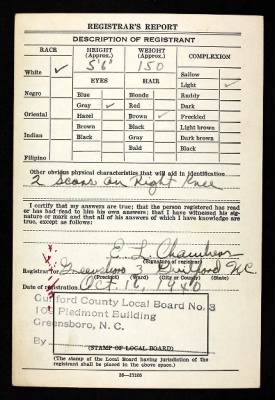 REGISTRAR'S REPORT
DESCRIPTION OF REGISTRANT
RACE HEIGHT (Approx.) WEIGHT (Approx.) COMPLEXION
5'6" 150
White ✓ Sallow
EYES HAIR Light ✓
Negro Blue Blonde Ruddy
Gray ✓ Red Dark
Oriental Hazel Brown ✓ Freckled
Brown Black Light brown
Indian Black Gray Dark brown
Bald Black
Filipino
Other obvious physical characteristics that will aid in identification
2 scars on Right Knee
I certify that my answers are true; that the person registered has read
or has had read to him his own answers; that I have witnessed his sig-
nature or mark and that all of his answers of which I have knowledge are
true, except as follows:
E. L.
(Signature of registrar)
Registrar for Greensboro Guilford NC
(Precinct) (Ward) (City or county) (State)
Date of registration Oct. 16, 1940
Guilford County Local Board No. 3
Piedmont Building
Greensboro, N. C.
By
(STAMP OF LOCAL BOARD)
(The stamp of the Local Board having jurisdiction of the
registrant shall be placed in the above space.)